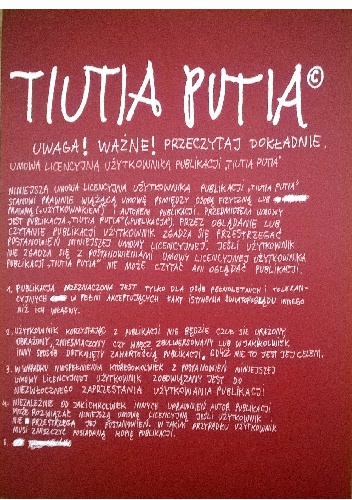 TIUTIA PUTIA©
UWAGA! WAŻNE! PRZECZYTAJ DOKŁADNIE.
UMOWA LICENCYJNA UŻYTKOWNIKA PUBLIKACJI „TIUTIA PUTIA"
NINIEJSZA UMOWA LICENCYJNA UŻYTKOWNIKA PUBLIKACJI „TIUTIA PUTIA"
STANOWI PRAWNIE WIĄŻĄCĄ UMOWĘ POMIĘDZY OSOBĄ FIZYCZNĄ LUB
PRAWNĄ („UŻYTKOWNIKIEM") I AUTOREM PUBLIKACJI. PRZEDMIOTEM UMOWY
JEST PUBLIKACJA „TIUTIA PUTIA" („PUBLIKACJA"). PRZEZ OGLĄDANIE LUB
CZYTANIE PUBLIKACJI UŻYTKOWNIK ZGADZA SIĘ PRZESTRZEGAĆ
POSTANOWIEŃ NINIEJSZEJ UMOWY LICENCYJNEJ. JEŚLI UŻYTKOWNIK
NIE ZGADZA SIĘ Z POSTANOWIENIAMI UMOWY LICENCYJNEJ UŻYTKOWNIKA
PUBLIKACJI „TIUTIA PUTIA" NIE MOŻE CZYTAĆ ANI OGLĄDAĆ PUBLIKACJI.
1. PUBLIKACJA PRZEZNACZONA JEST TYLKO DLA OSÓB PEŁNOLETNICH I TOLERAN-
CYJNYCH W PEŁNI AKCEPTUJĄCYCH FAKT ISTNIENIA ŚWIATOPOGLĄDU INNEGO
NIŻ ICH WŁASNY.
2. UŻYTKOWNIK KORZYSTAJĄC Z PUBLIKACJI NIE BĘDZIE CZUŁ SIĘ URAŻONY,
OBRAŻONY, ZNIESMACZONY CZY ZBULWERSOWANY LUB W JAKIKOLWIEK
INNY SPOSÓB DOTKNIĘTY ZAWARTOŚCIĄ PUBLIKACJI, GDYŻ NIE TO JEST JEJ CELEM.
3. W WYPADKU NIESPEŁNIENIA KTÓREGOKOLWIEK Z POSTANOWIEŃ NINIEJSZEJ
UMOWY LICENCYJNEJ UŻYTKOWNIK ZOBOWIĄZANY JEST DO
NIEZWŁOCZNEGO ZAPRZESTANIA UŻYTKOWANIA PUBLIKACJI
4. NIEZALEŻNIE OD JAKICHKOLWIEK INNYCH UPRAWNIEŃ AUTOR PUBLIKACJI
MOŻE ROZWIĄZAĆ NINIEJSZĄ UMOWĘ LICENCYJNĄ JEŚLI UŻYTKOWNIK
NIE PRZESTRZEGA JEJ POSTANOWIEŃ. W TAKIM PRZYPADKU UŻYTKOWNIK
MUSI ZNISZCZYĆ POSIADANĄ KOPIĘ PUBLIKACJI.
5.